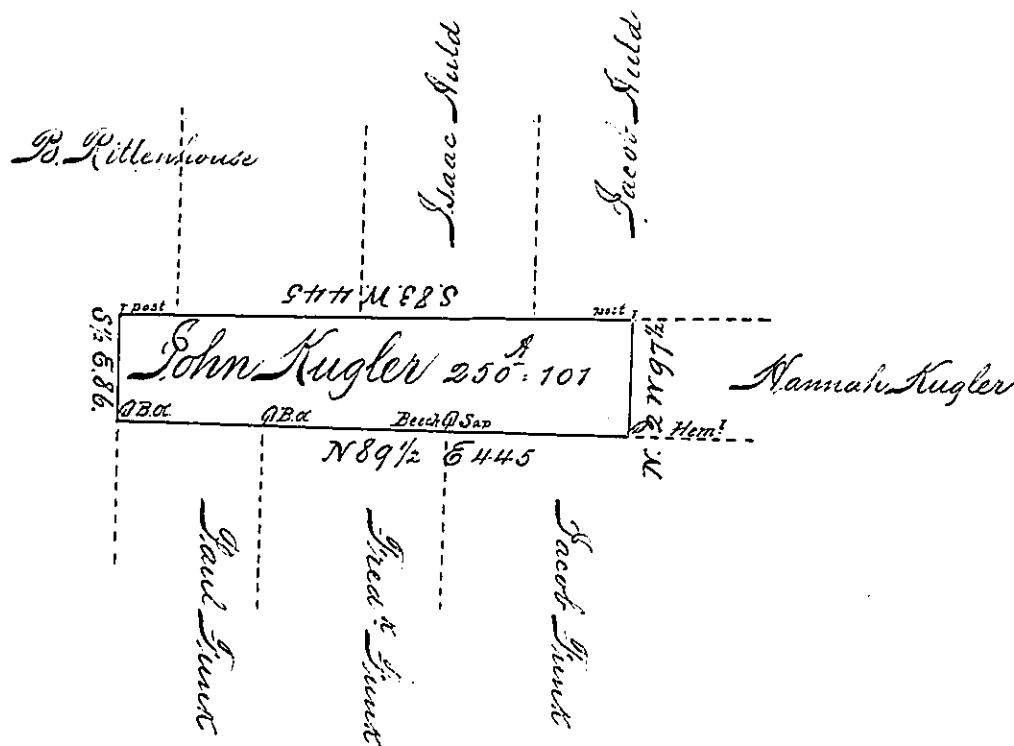 B. Rittenhouse
Isaac Auld
Jacob Auld
S.83.W.445
post
post
S½ E.86.
John Kugler 250 A = 101
Hannah Kugler
B.O.
B.O.
Beech Sap
Hem.
N 89½ E 445
Paul Funk
Fred.k Funk
Jacob Funk